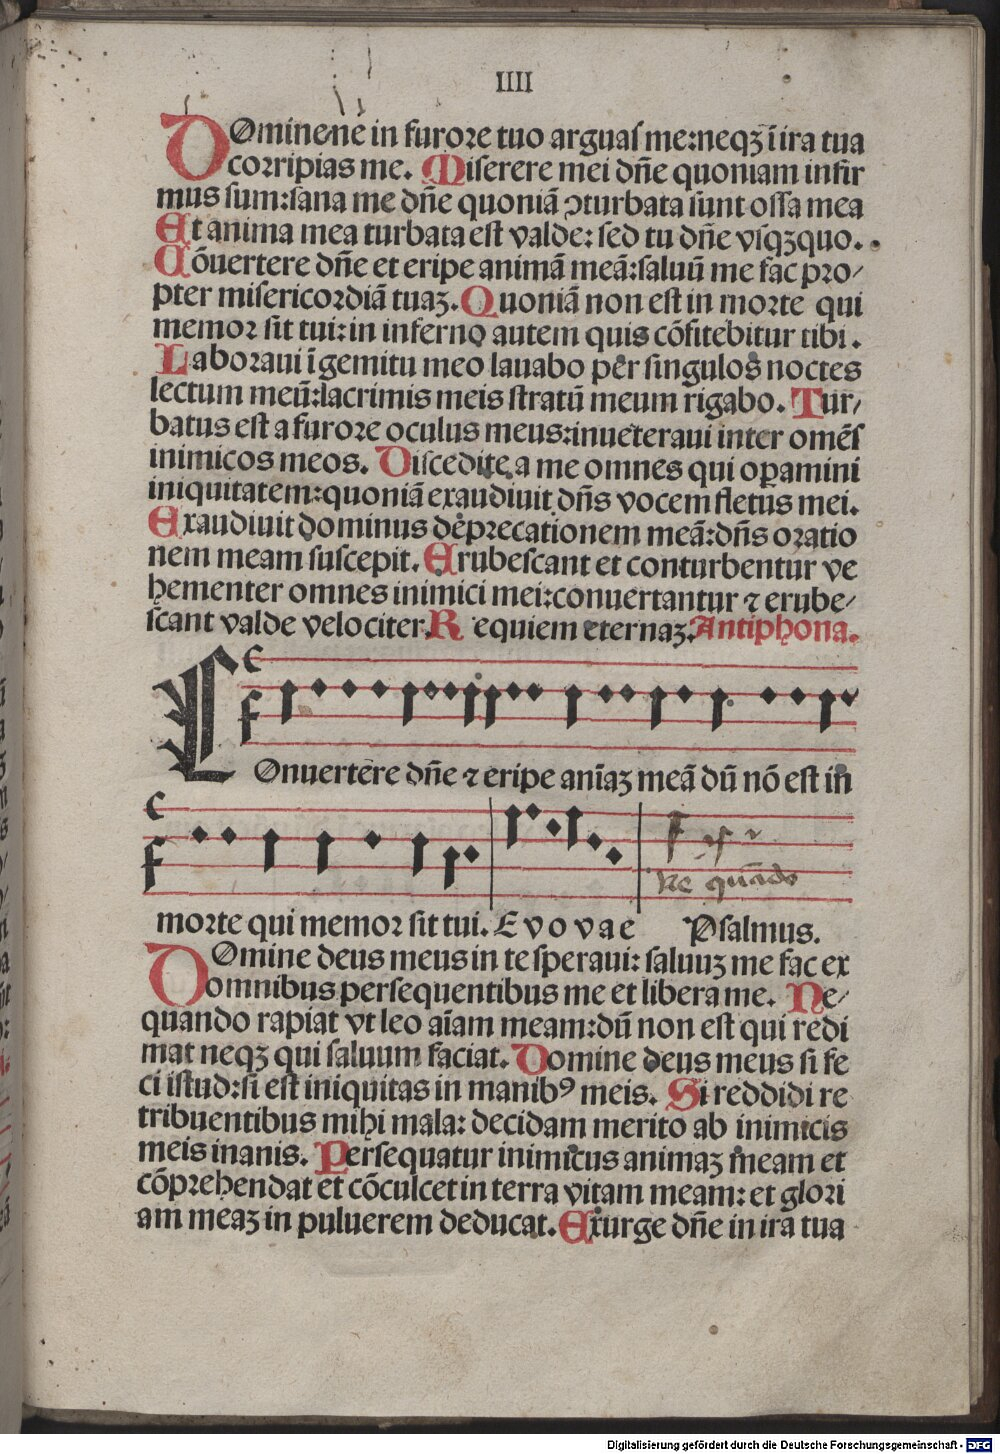 IIII
DOmine ne in furore tuo arguas me: neqꝫ ĩ ira tua
corripias me. Miserere mei dñe quoniam infir
mus sum: sana me dñe quoniã ↄturbata sunt ossa mea
Et anima mea turbata est valde: sed tu dñe vsqꝫquo.
Cõuertere dñe et eripe animã meã: saluũ me fac pro/
pter misericordiã tuaꝫ. Quoniã non est in morte qui
memor sit tui: in inferno autem quis cõfitebitur tibi.
Laboraui ĩ gemitu meo lauabo per singulos noctes
lectum meũ: lacrimis meis stratũ meum rigabo. Tur/
batus est a furore oculus meus: inueteraui inter omẽs
inimicos meos. Discedite a me omnes qui oꝑamini
iniquitatem: quoniã exaudiuit dñs vocem fletus mei.
Exaudiuit dominus deprecationem meã: dñs oratio
nem meam suscepit. Erubescant et conturbentur ve
hementer omnes inimici mei: conuertantur ⁊ erube/
scant valde velociter. Requiem eternaꝫ. Antiphona.
COnuertere dñe ⁊ eripe aniãꝫ meã dũ nõ est in
Ne quãdo
morte qui memor sit tui. E v o v a e Psalmus.
DOmine deus meus in te speraui: saluuꝫ me fac ex
omnibus persequentibus me et libera me. Ne/
quando rapiat vt leo aĩam meam: dũ non est qui redi
mat neqꝫ qui saluum faciat. Domine deus meus si fe
ci istud: si est iniquitas in manibꝰ meis. Si reddidi re
tribuentibus mihi mala: decidam merito ab inimicis
meis inanis. Persequatur inimicus animaꝫ meam et
cõprehendat et cõculcet in terra vitam meam: et glori
am meaꝫ in puluerem deducat. Exurge dñe in ira tua
Digitalisierung gefördert durch die Deutsche Forschungsgemeinschaft - DFG